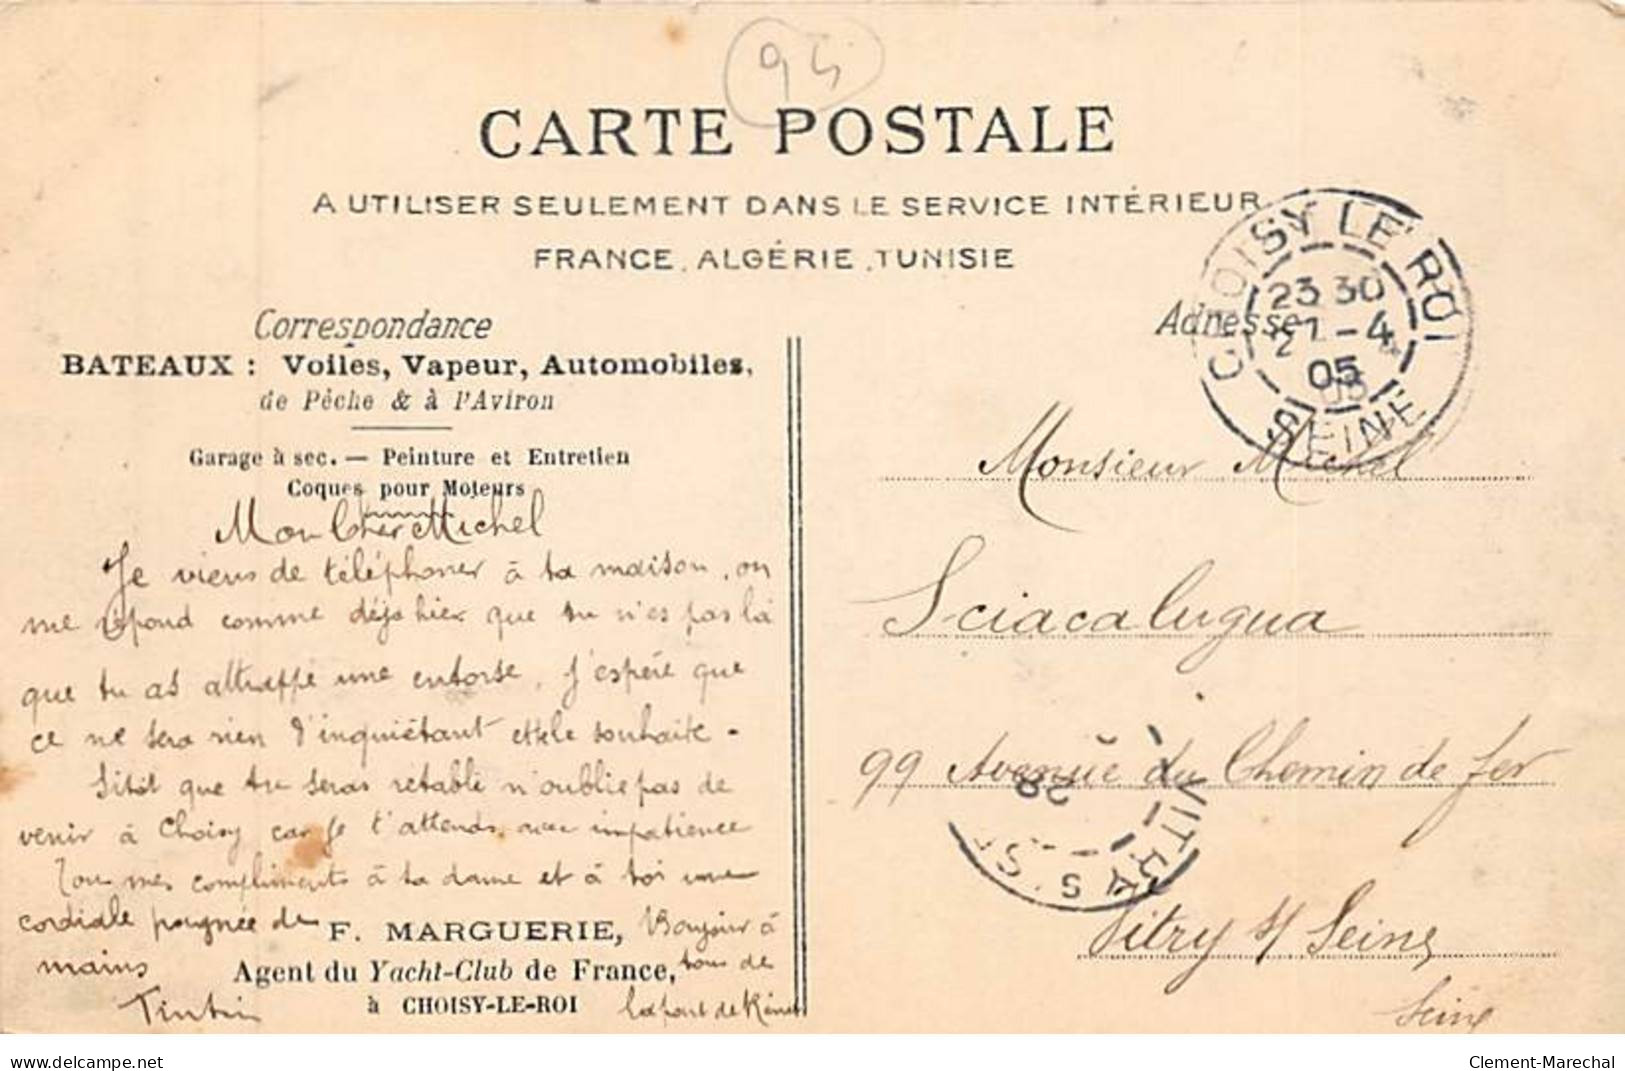 94
CARTE POSTALE
A UTILISER SEULEMENT DANS LE SERVICE INTÉRIEUR
FRANCE, ALGÉRIE, TUNISIE
CHOISY LE ROI
23 30
27 - 4
05
SEINE
Correspondance
BATEAUX : Voiles, Vapeur, Automobiles,
de Pêche & à l'Aviron
Garage à sec. — Peinture et Entretien
Coques pour Moteurs
Mon Cher Michel
Je viens de téléphoner à ta maison, on
me répond comme déjà hier que tu n'es pas là
que tu as attrappé une entorse, j'espère que
ce ne sera rien d'inquiétant et te le souhaite -
Sitôt que tu seras rétabli n'oublie pas de
venir à Choisy car je t'attends avec impatience
Tous mes compliments à ta dame et à toi une
cordiale poignée de
mains
Tintin
F. MARGUERIE,
Agent du Yacht-Club de France,
à CHOISY-LE-ROI
Bonjour à
tous de
la part de
Adresse
Monsieur Michel
Sciacalugua
99 Avenue du Chemin de fer
VITRY S. S.
28
Vitry s/ Seine
Seine
www.delcampe.net
Clement-Marechal